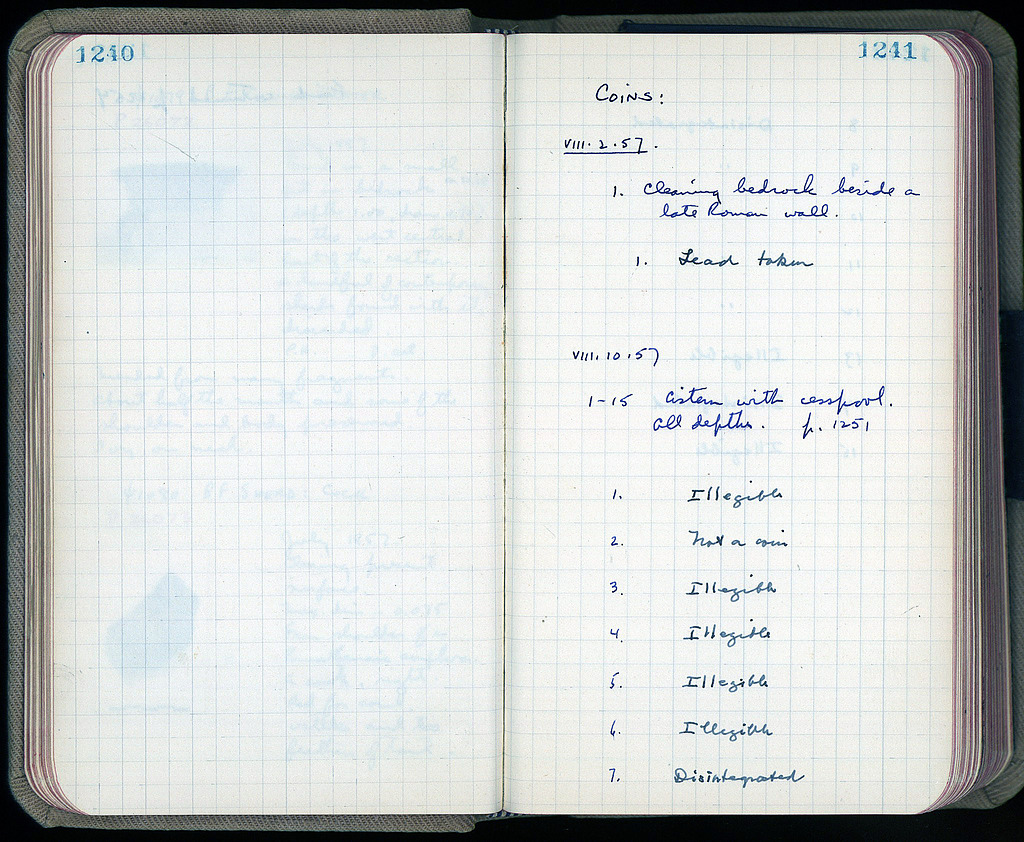 1240
1241
Coins:
VIII.2.57.
1. Cleaning bedrock beside a
late Roman wall.
1. Lead token
VIII.10.57
1-15 Cistern with cesspool.
All depths. p. 1251
1. Illegible
2. Not a coin
3. Illegible
4. Illegible
5. Illegible
6. Illegible
7. Disintegrated